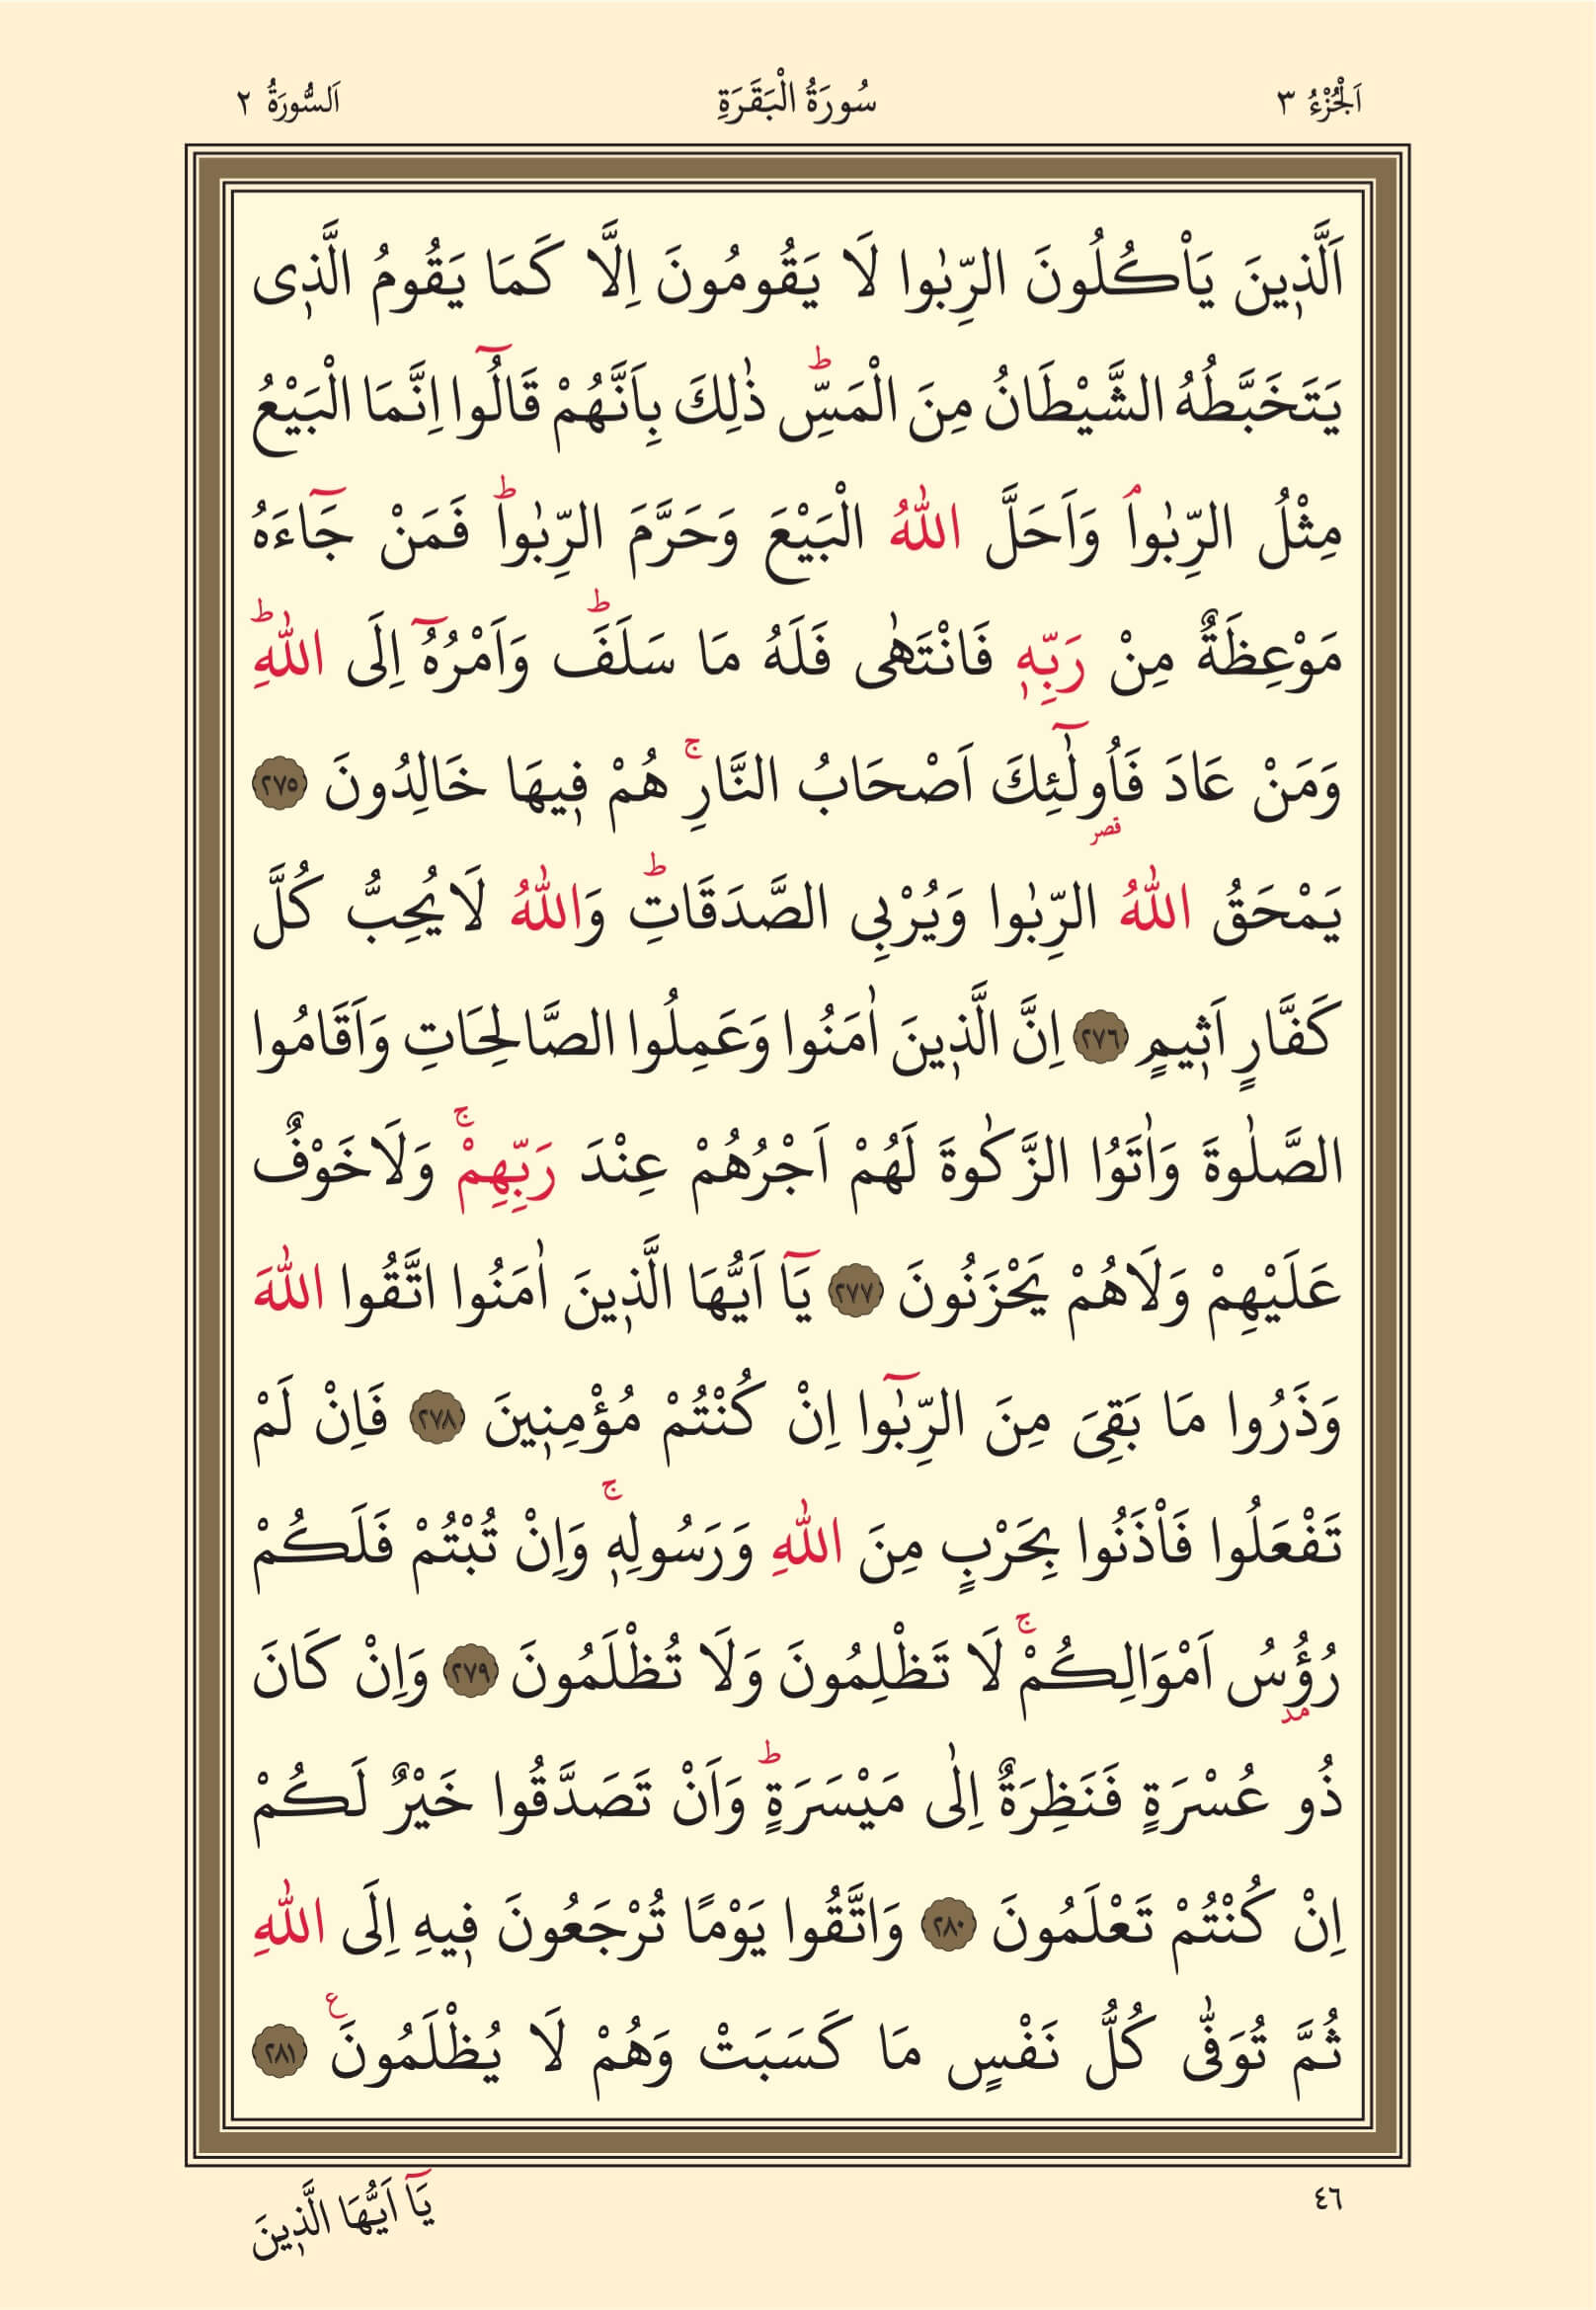 اَلْجُزْءُ ٣ سُورَةُ الْبَقَرَةِ اَلسُّورَةُ ٢
اَلَّذ۪ينَ يَأْكُلُونَ الرِّبٰوا لَا يَقُومُونَ اِلَّا كَمَا يَقُومُ الَّذ۪ى
يَتَخَبَّطُهُ الشَّيْطَانُ مِنَ الْمَسِّۜ ذٰلِكَ بِاَنَّهُمْ قَالُٓوا اِنَّمَا الْبَيْعُ
مِثْلُ الرِّبٰواۢ وَاَحَلَّ اللّٰهُ الْبَيْعَ وَحَرَّمَ الرِّبٰواۜ فَمَنْ جَٓاءَهُ
مَوْعِظَةٌ مِنْ رَبِّه۪ فَانْتَهٰى فَلَهُ مَا سَلَفَۜ وَاَمْرُهُٓ اِلَى اللّٰهِۜ
وَمَنْ عَادَ فَاُو۬لٰٓئِكَ اَصْحَابُ النَّارِۚ هُمْ ف۪يهَا خَالِدُونَ ٢٧٥
قصر
يَمْحَقُ اللّٰهُ الرِّبٰوا وَيُرْبِى الصَّدَقَاتِۜ وَاللّٰهُ لَايُحِبُّ كُلَّ
كَفَّارٍ اَث۪يمٍ ٢٧٦ اِنَّ الَّذ۪ينَ اٰمَنُوا وَعَمِلُوا الصَّالِحَاتِ وَاَقَامُوا
الصَّلٰوةَ وَاٰتَوُا الزَّكٰوةَ لَهُمْ اَجْرُهُمْ عِنْدَ رَبِّهِمْۚ وَلَاخَوْفٌ
عَلَيْهِمْ وَلَاهُمْ يَحْزَنُونَ ٢٧٧ يَٓا اَيُّهَا الَّذ۪ينَ اٰمَنُوا اتَّقُوا اللّٰهَ
وَذَرُوا مَا بَقِىَ مِنَ الرِّبٰٓوا اِنْ كُنْتُمْ مُؤْمِن۪ينَ ٢٧٨ فَاِنْ لَمْ
تَفْعَلُوا فَأْذَنُوا بِحَرْبٍ مِنَ اللّٰهِ وَرَسُولِه۪ۚ وَاِنْ تُبْتُمْ فَلَكُمْ
رُؤُ۫سُ اَمْوَالِكُمْۚ لَا تَظْلِمُونَ وَلَا تُظْلَمُونَ ٢٧٩ وَاِنْ كَانَ
مد
ذُو عُسْرَةٍ فَنَظِرَةٌ اِلٰى مَيْسَرَةٍۜ وَاَنْ تَصَدَّقُوا خَيْرٌ لَكُمْ
اِنْ كُنْتُمْ تَعْلَمُونَ ٢٨٠ وَاتَّقُوا يَوْمًا تُرْجَعُونَ ف۪يهِ اِلَى اللّٰهِ
ثُمَّ تُوَفّٰى كُلُّ نَفْسٍ مَا كَسَبَتْ وَهُمْ لَا يُظْلَمُونَ ع ٢٨١
٤٦
يَٓا اَيُّهَا الَّذ۪ينَ